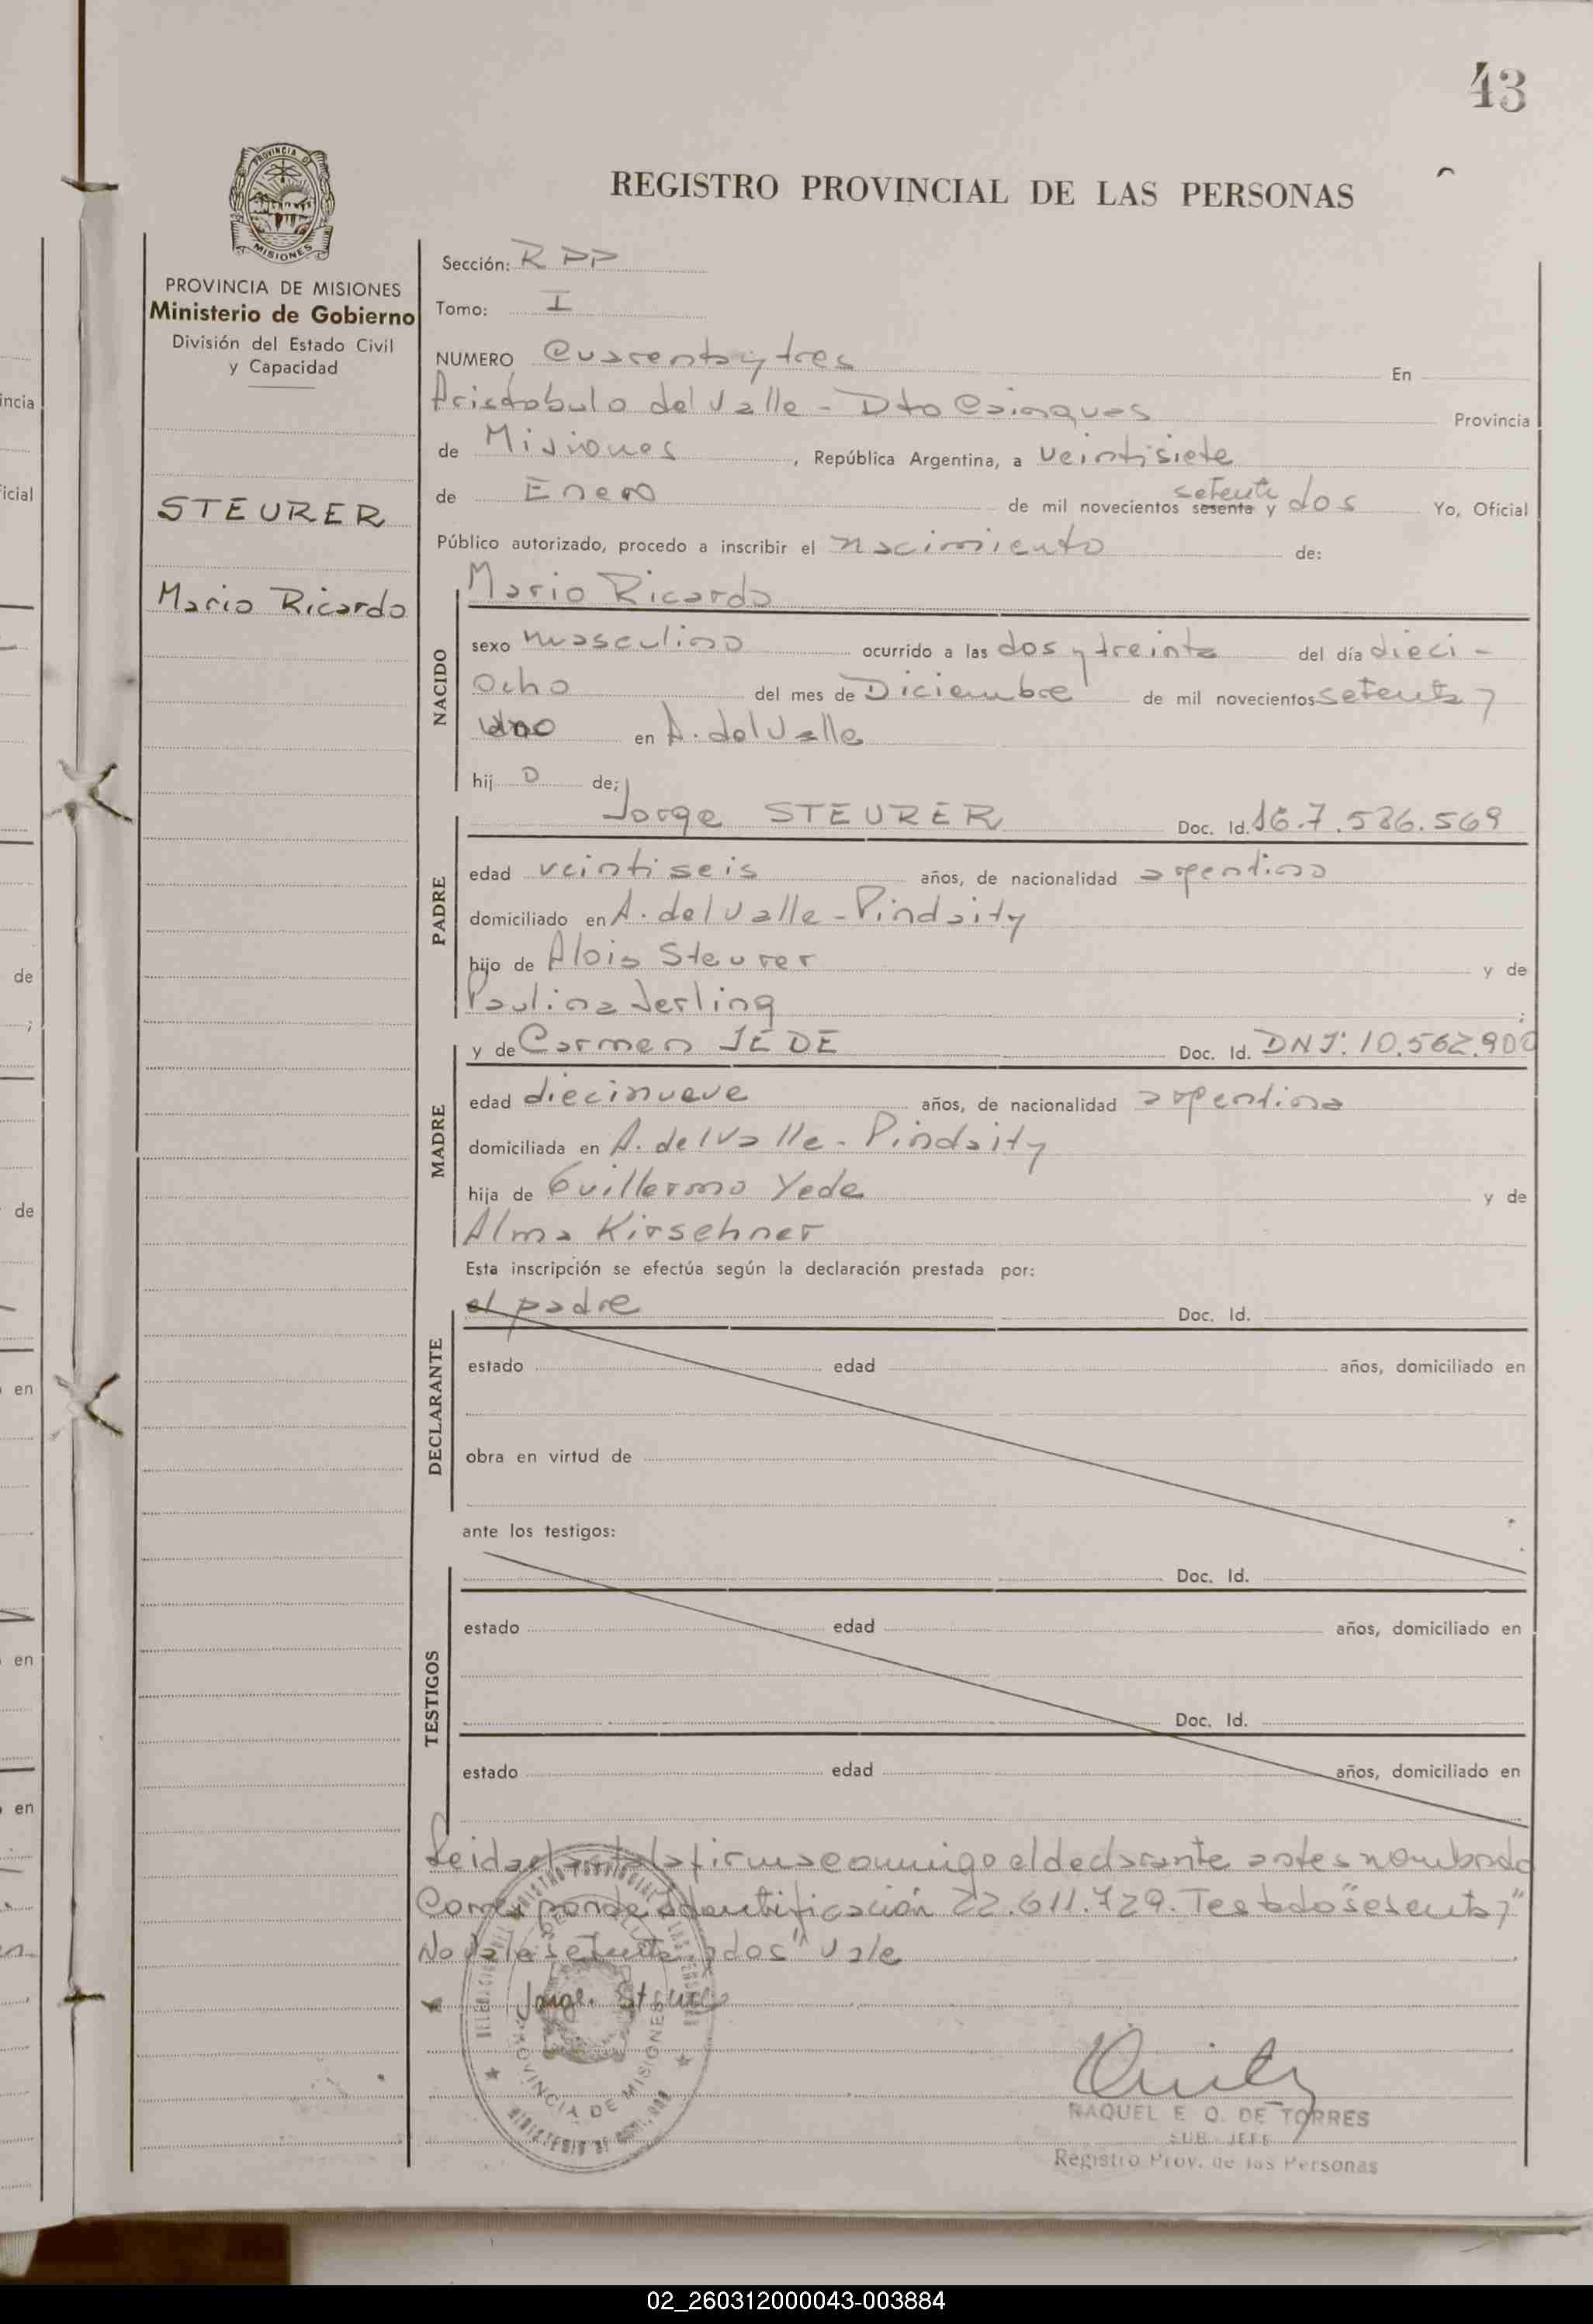 43
REGISTRO PROVINCIAL DE LAS PERSONAS
PROVINCIA DE MISIONES
Ministerio de Gobierno
División del Estado Civil
y Capacidad
STEURER
Mario Ricardo
Sección: R PP
Tomo: I
NUMERO Cuarenta y tres En
Aristobulo del Valle - Dto Cainguas Provincia
de Misiones, República Argentina, a veintisiete
de Enero de mil novecientos sesenta y setenta dos Yo, Oficial
Público autorizado, procedo a inscribir el nacimiento de:
NACIDO
Mario Ricardo
sexo masculino ocurrido a las dos y treinta del día dieci-
ocho del mes de Diciembre de mil novecientos setenta y
uno en A. del Valle
hij o de;
PADRE
Jorge STEURER Doc. Id. 7.586.569
edad veintiseis años, de nacionalidad argentino
domiciliado en A. del Valle - Pindaity
hijo de Alois Steurer y de
Paulina Jerling ;
MADRE
y de Carmen JEDE Doc. Id. DNI: 10.562.900
edad diecinueve años, de nacionalidad argentina
domiciliada en A. del Valle - Pindaity
hija de Guillermo Yede y de
Alma Kirschner
Esta inscripción se efectúa según la declaración prestada por:
DECLARANTE
el padre Doc. Id.
estado edad años, domiciliado en
obra en virtud de
ante los testigos:
TESTIGOS
Doc. Id.
estado edad años, domiciliado en
Doc. Id.
estado edad años, domiciliado en
Leida el acta la firma conmigo el declarante antes nombrado
Corresponde Identificación 22.611.729. Testado "sesenta y"
No Vale setenta y dos" Vale
Jorge Steurer
PROVINCIA DE MISIONES
RAQUEL E O. DE TORRES
SUB-JEFE
Registro Prov. de las Personas
incia
icial
de
;
de
en
en
en
02_260312000043-003884